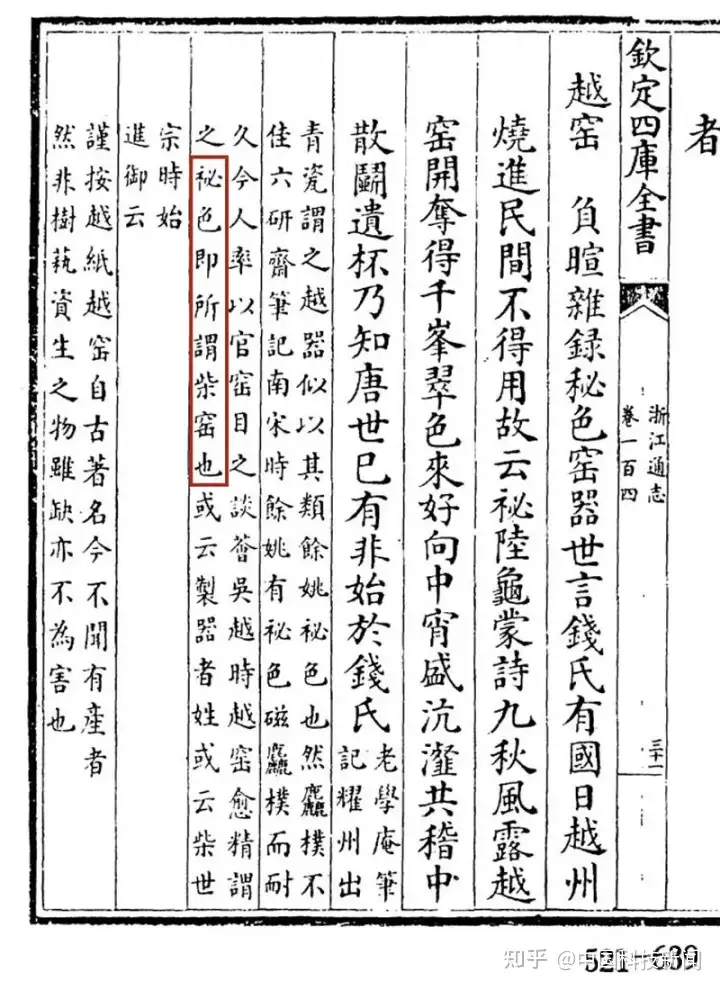 者
欽定四庫全書
浙江通志
卷一百四
三十一
越窑　負暄雜録秘色窑器世言錢氏有國日越州
燒進民間不得用故云祕陸龜蒙詩九秋風露越
窑開奪得千峯翠色來好向中宵盛沆瀣共稽中
散鬭遺杯乃知唐世已有非始於錢氏
老學庵筆
記耀州出
青瓷謂之越器似以其類餘姚祕色也然麤樸不
佳六研齋筆記南宋時餘姚有祕色磁麤樸而耐
久今人率以官窑目之談薈吳越時越窑愈精謂
之祕色即所謂柴窑也或云製器者姓或云柴世
宗時始
進御云
謹按越紙越窑自古著名今不聞有産者
然非樹蓺資生之物雖缺亦不為害也
521 639
知乎 @中国科技新闻